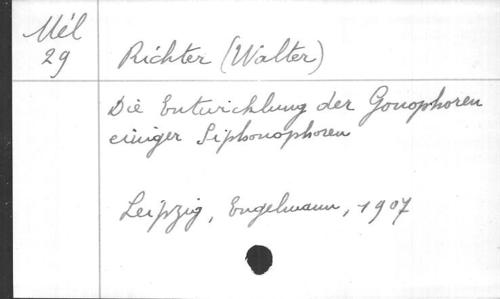 Mél
29
Richter (Walter)
Die Entwicklung der Gonophoren
einiger Siphonophoren
Leipzig, Engelmann, 1907